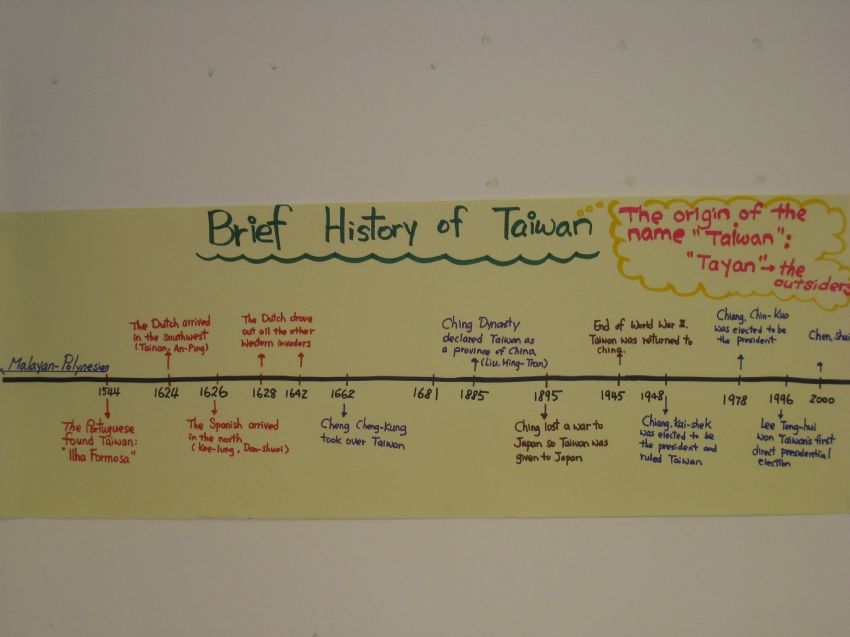 Brief History of Taiwan
The origin of the
name "Taiwan":
"Tayan" → the
outsiders
The Dutch arrived
in the Southwest
(Tainan, An-Ping)
The Dutch drove
out all the other
Western invaders
Ching Dynasty
declared Taiwan as
a province of China.
(Liu, Ming-Tran)
End of World War II.
Taiwan was returned to
China.
Chiang, Chin-Kuo
was elected to be
the president
Chen, shui
Malayan-Polynesian
1544 1624 1626 1628 1642 1662 1681 1885 1895 1945 1948 1978 1996 2000
The Portuguese
found Taiwan:
"Ilha Formosa"
The Spanish arrived
in the north
(Kee-lung, Dan-shuei)
Cheng Cheng-Kung
took over Taiwan
Ching lost a war to
Japan so Taiwan was
given to Japan
Chiang, kai-shek
was elected to be
the president and
ruled Taiwan
Lee Teng-hui
won Taiwan's first
direct presidential
election